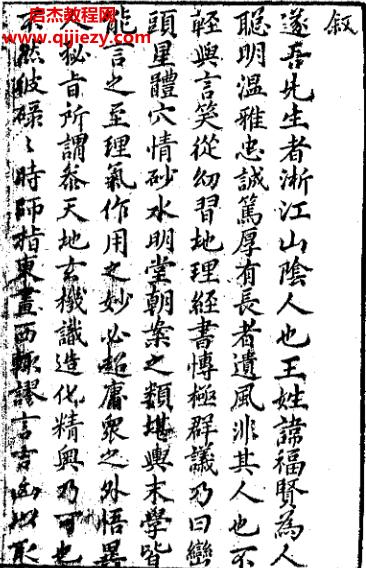 启杰教程网
www.qijiezy.com
叙
遂吾先生者浙江山陰人也王姓諱福賢為人
聰明溫雅忠誠篤厚有長者遺風非其人也不
輕與言笑從幼習地理经書博極群議乃曰巒
頭星體穴情砂水明堂朝案之類堪輿末學皆
能言之至理氣作用之妙必超庸衆之外悟異
秘旨所謂叅天地玄機識造化精興乃可也
不然彼碌〻時師指東畫西輒謬言吉凶以取